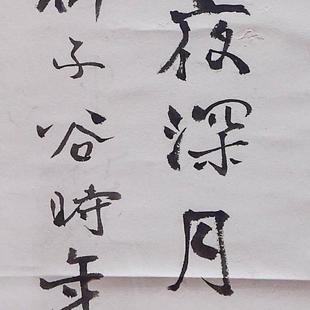 夜深月
子谷時年